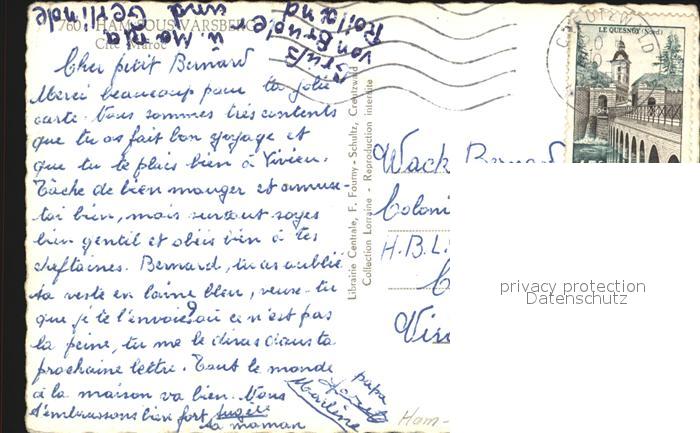 7601 HAM SOUS VARSBERG
Cité Maroc
Gruß
von Bruder
Rolland
u. Ma Pa
und Gerlinde
Cher petit Bernard
Merci beaucoup pour ta jolie
carte. Nous sommes très contents
que tu as fait bon voyage et
que tu te plais bien à Vivier.
Tâche de bien manger et amuse-
toi bien, mais surtout soyes
bien gentil et obéis bien à tes
cheftaines. Bernard, tu as oublié
ta veste en laine bleu, veux-tu
que je te l'envoie? où ce n'est pas
la peine, tu me le diras dans ta
prochaine lettre. Tout le monde
à la maison va bien. Nous
t'embrassons bien fort,
ta maman
papa
Marlène
Librairie Centrale, F. Fourny - Schultz, Creutzwald
Collection Lorraine - Reproduction interdite
CREUTZWALD
LE QUESNOY (Nord)
Wack Bernard
Coloni
H.B.L.
privacy protection
Datenschutz
Ham-